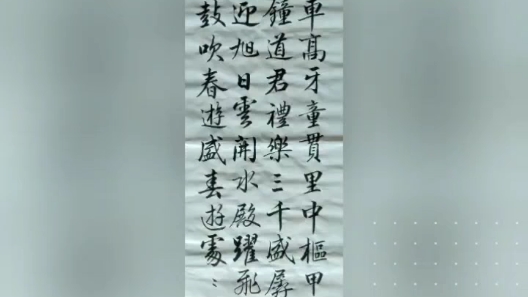 車高牙童貫里中樞甲
鐘道君禮樂三千盛
迎旭日雲開水殿躍飛
鼓吹春遊盛春遊處